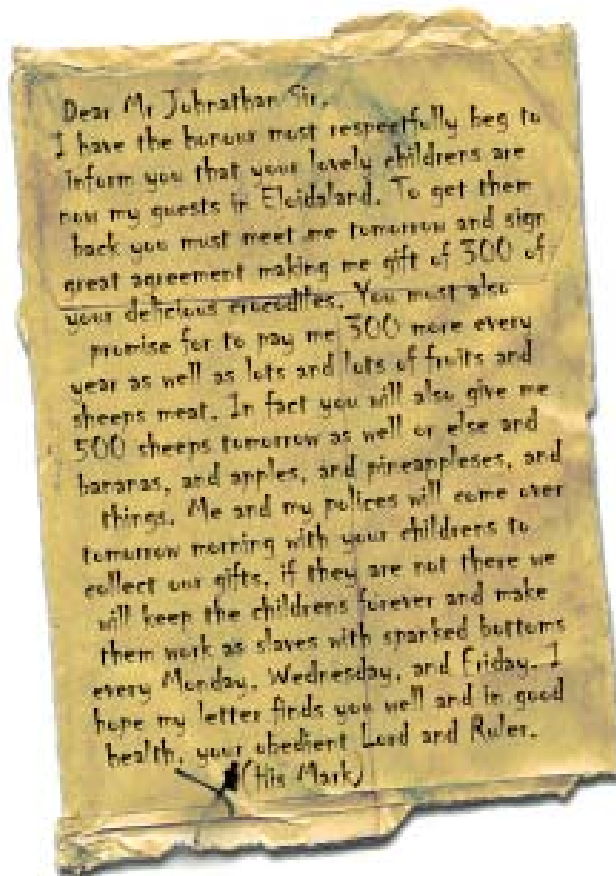 Dear Mr Johnathan Sir,
I have the honour most respectfully beg to
inform you that your lovely childrens are
now my guests in Eloidaland. To get them
back you must meet me tomorrow and sign
great agreement making me gift of 300 of
your delicious crocodiles. You must also
promise for to pay me 300 more every
year as well as lots and lots of fruits and
sheeps meat. In fact you will also give me
500 sheeps tomorrow as well or else and
bananas, and apples, and pineappleses, and
things. Me and my polices will come over
tomorrow morning with your childrens to
collect our gifts, if they are not there we
will keep the childrens forever and make
them work as slaves with spanked bottoms
every Monday, Wednesday, and Friday. I
hope my letter finds you well and in good
health, your obedient Lord and Ruler.
(His Mark)